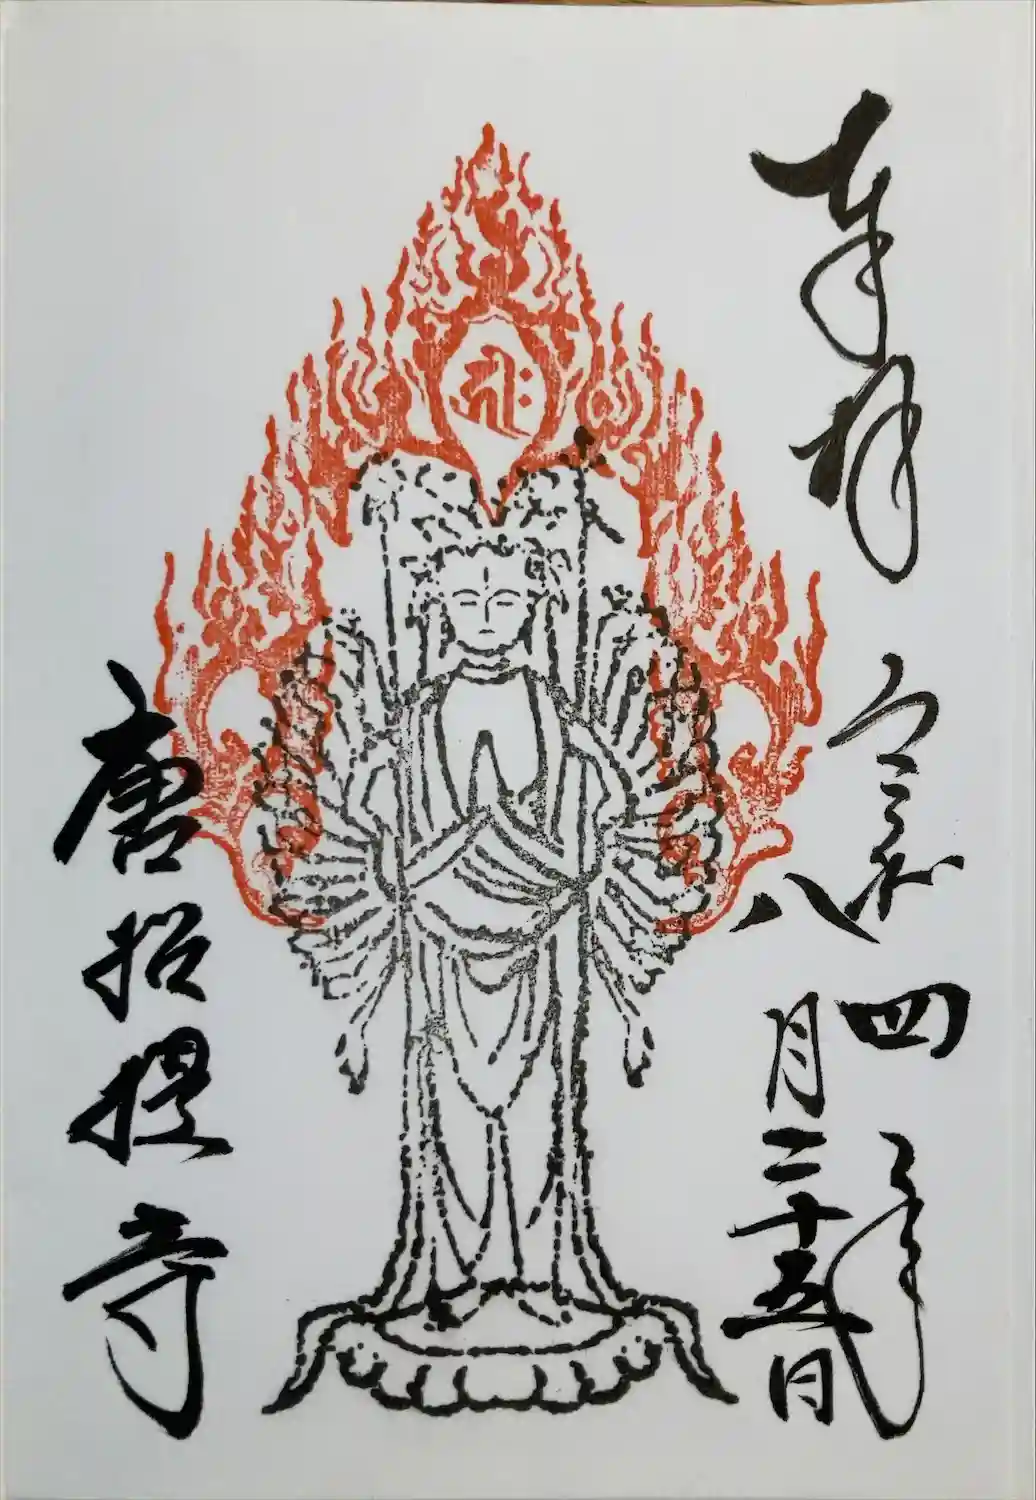 奉拝
令和四年
八月二十五日
唐招提寺